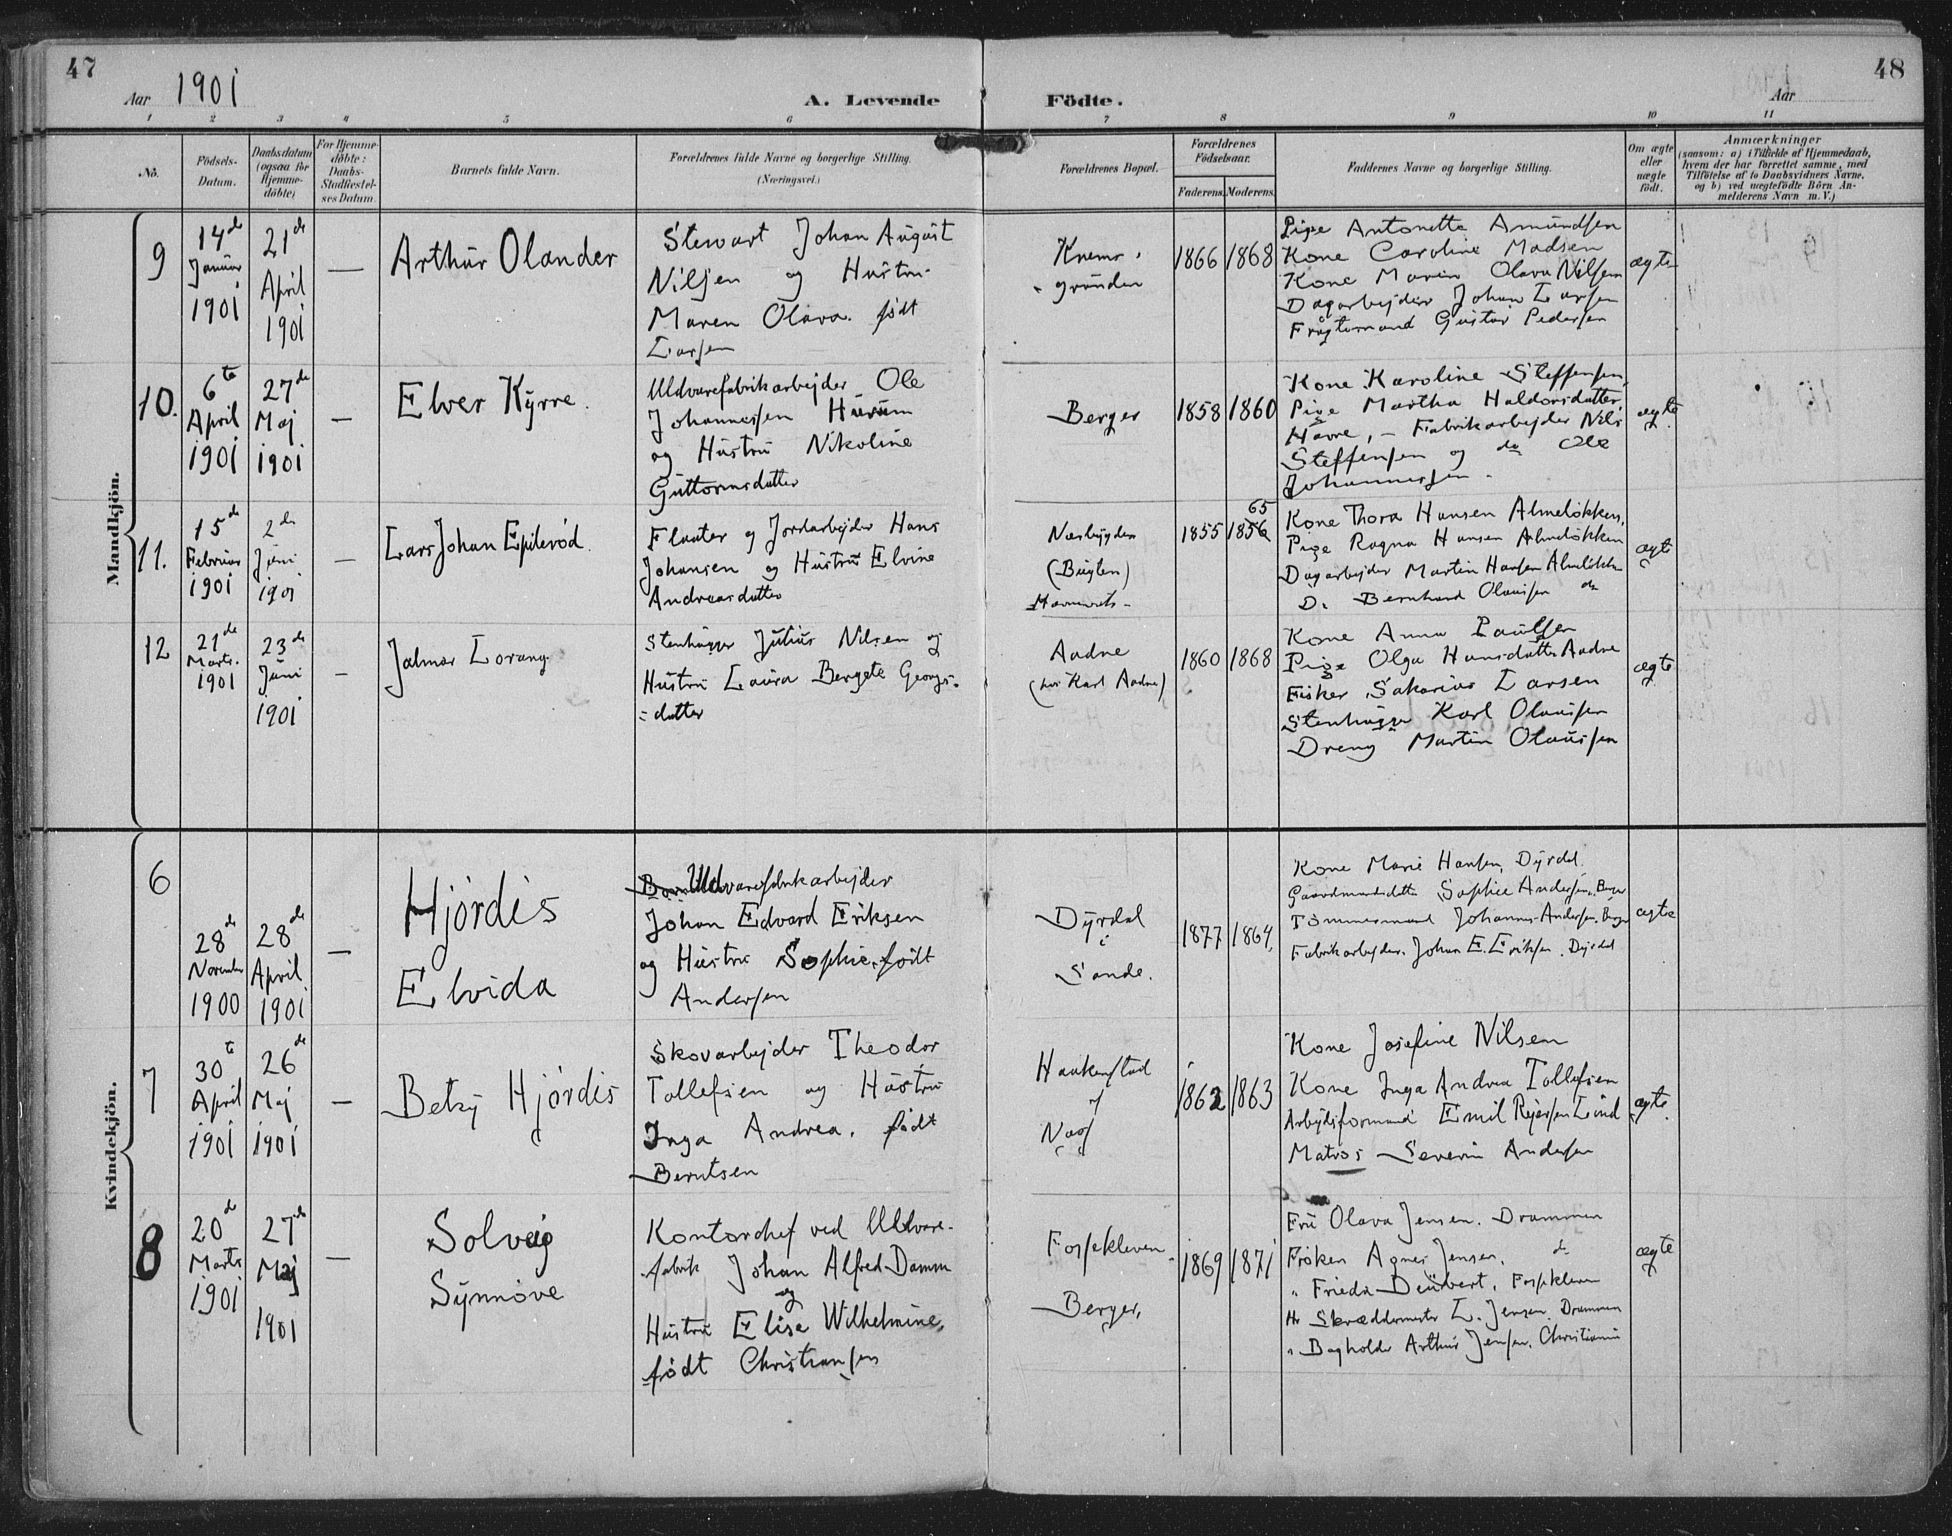 47
Aar 1901
A. Levende
Födte.
Aar
48
1 2 3 4 5 6 7 8 9 10 11
No.
Födsels-
Datum.
Daabsdatum
(ogsaa for
Hjemme-
döbte)
For Hjemme-
döbte:
Daabs-
Stadfæstel-
ses Datum.
Barnets fulde Navn.
Forældrenes fulde Navne og borgerlige Stilling.
(Næringsvei.)
Forældrenes Bopæl.
Forældrenes
Födselsaar.
Faderens. Moderens.
Faddernes Navne og borgerlige Stilling.
Om ægte
eller
uægte
födt.
Anmærkninger
(saasom: a) i Tilfælde af Hjemmedaab,
hvem der har forrettet samme, med
Tilföielse af to Daabsvidners Navne,
og b) ved uægtefödte Börn An-
melderens Navn m. V.)
Mandkjön.
9
14de
Januar
1901
21de
April
1901
—
Arthur Olander
Stewart Johan August
Nilsen og Hustru
Maren Olava. født
Larsen
Knems-
grunden
1866 1868
Pige Antonette Amundsen
Kone Caroline Madsen
Kone Maren Olava Nilsen
Dagarbejder Johan Larsen
Gustav Pedersen
ægte
10.
6te
April
1901
27de
Maj
1901
—
Elver Kyrre.
Uldvarefabrikarbejder Ole
Johannessen Hurum
og Hustru Nikoline
Guttormsdatter
Berger
1858 1860
Kone Karoline Steffensen,
Pige Martha Haldorsdatter
Havre, – Fabrikarbejder Nils
Steffensen og do Ole
Johannessen.
ægte
11.
15de
Februar
1901
2de
Juni
1901
—
Lars Johan Epilevød.
Fløater og Jordarbejder Hans
Johansen og Hustru Elvine
Andreasdatter
Nesbygden
(Bugten)
1855
65
1856
Kone Thora Hansen Almeløkken,
Pige Ragna Hansen Almeløkken
Dagarbejder Martin Hansen Almeløkk.
D. Bernhard Olausen do
ægte
12
21de
Marts.
1901
23de
Juni
1901
–
Jalmar Lorang
Stenhugger Julius Nilsen og
Hustru Laura Bergete Georgs-
=datter
Aadne
(hos Karl Aadne)
1860 1868
Kone Anna Paulsen
Pige Olga Hansdatter Aadne
Fisker Sakarias Larsen
Stenhugger Karl Olausen
Dreng Martin Olausen
ægte
Kvindekjön.
6
28de
November
1900
28de
April
1901
—
Hjördis
Elvida
Uldvarefabrikarbejder
Johan Edvard Eriksen
og Hustru Sophie, født
Andersen
Dyrdal
i
Sande.
1877 1864,
Kone Marie Hansen, Dyrdal.
Gaardmandsdatter Sophie Andersen, Berger
Tömmermand Johannes Andersen, Berger
Fabrikarbejder Johan E. Eriksen. Dyrdal
ægte
7
30te
April
1901
26de
Maj
1901
—
Betzy Hjørdis
Skovarbejder Theodor
Tollefsen og Hustru
Inga Andrea. født
Berntsen
Haakenstad
Næs
1862 1863
Kone Josefine Nilsen
Kone Inga Andrea Tollefsen
Arbejdsformand Emil Rejersen Lind
Matros Severin Andersen
ægte.
8
20de
Marts
1901
27de
Maj
1901
—
Solveig
Synnøve
Kontorchef ved Uldvare-
fabrik Johan Alfred Damm
og
Hustru Elise Wilhelmine,
født Christiansen
Fossekleven
Berger,
1869 1871
Fru Olava Jensen. Drammen
Frøken Agnes Jensen. do
" Frieda Deubert, Fossekleven
Hr Skræddermester L. Jensen. Drammen
" Bogholder Arthur Jensen. Christiania
ægte